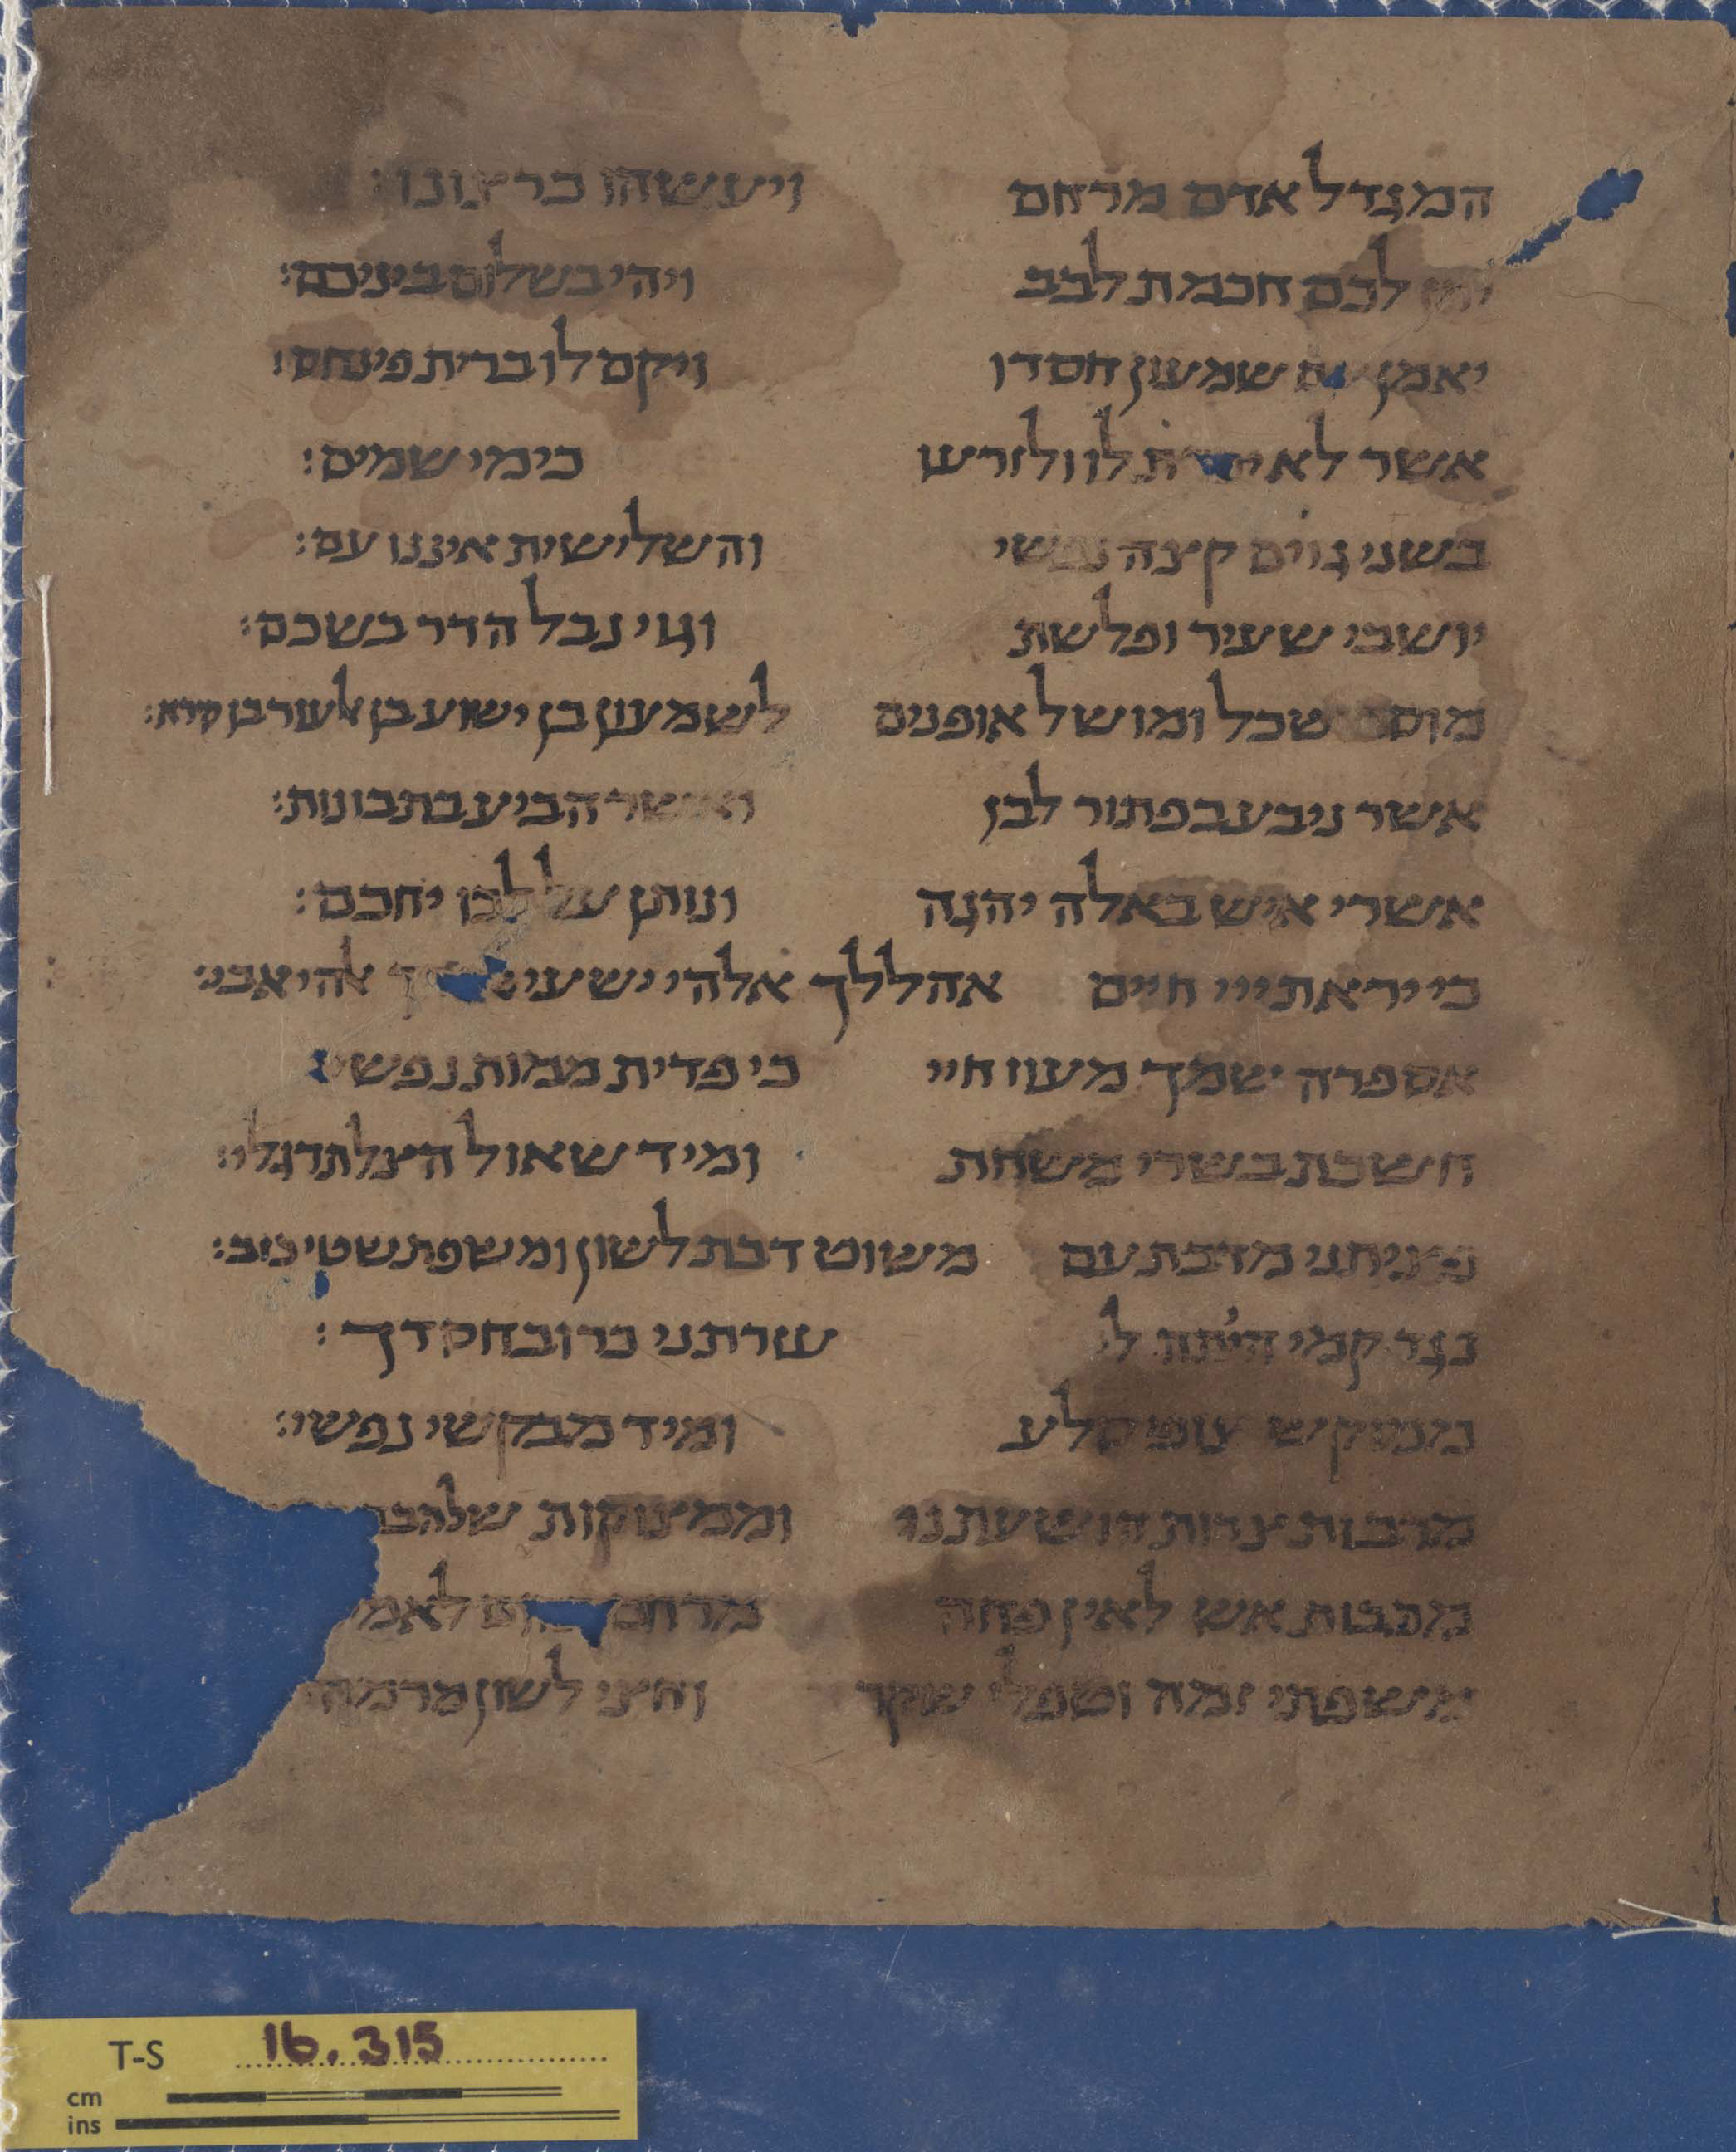 המגדל אדם מרחם ויעשהו כרצונו:
לכם חכמת לבב ויהי בשלום ביניכם:
יאמן עם שמעון חסדו ויקם לו ברית פינחס:
אשר לא יכרת לו ולזרעו כימי שמים:
בשני גוים קצה נפשי והשלישית איננו עם:
יושבי שעיר ופלשת וגוי נבל הדר בשכם:
מוסר שכל ומושל אופנים לשמעון בן ישוע בן אלעזר בן סירא:
אשר ניבע בפתור לבו ואשר הביע בתבונות:
אשרי איש באלה יהגה ונותן על לבו יחכם:
כי יראת ייי חיים אהללך אלהי ישעי אלהי אבי:
אספרה שמך מעוז חיי כי פדית ממות נפשי
חשכת בשרי משחת ומיד שאול הצלת רגלי:
פציתני מדבת עם משוט דבת לשון ומשפת שטי כזב:
נגד קמי הייתה לי עזרתני כרוב חסדך:
ממוקש צופי סלע ומיד מבקשי נפשי:
מרבות צרות הושעתני וממצוקות שלהבה
מכבות אש לאין פחה מרחם לאמ
משפתי זמה וטפלי שקר וחצי לשון מרמה
T-S 16.315
cm
ins